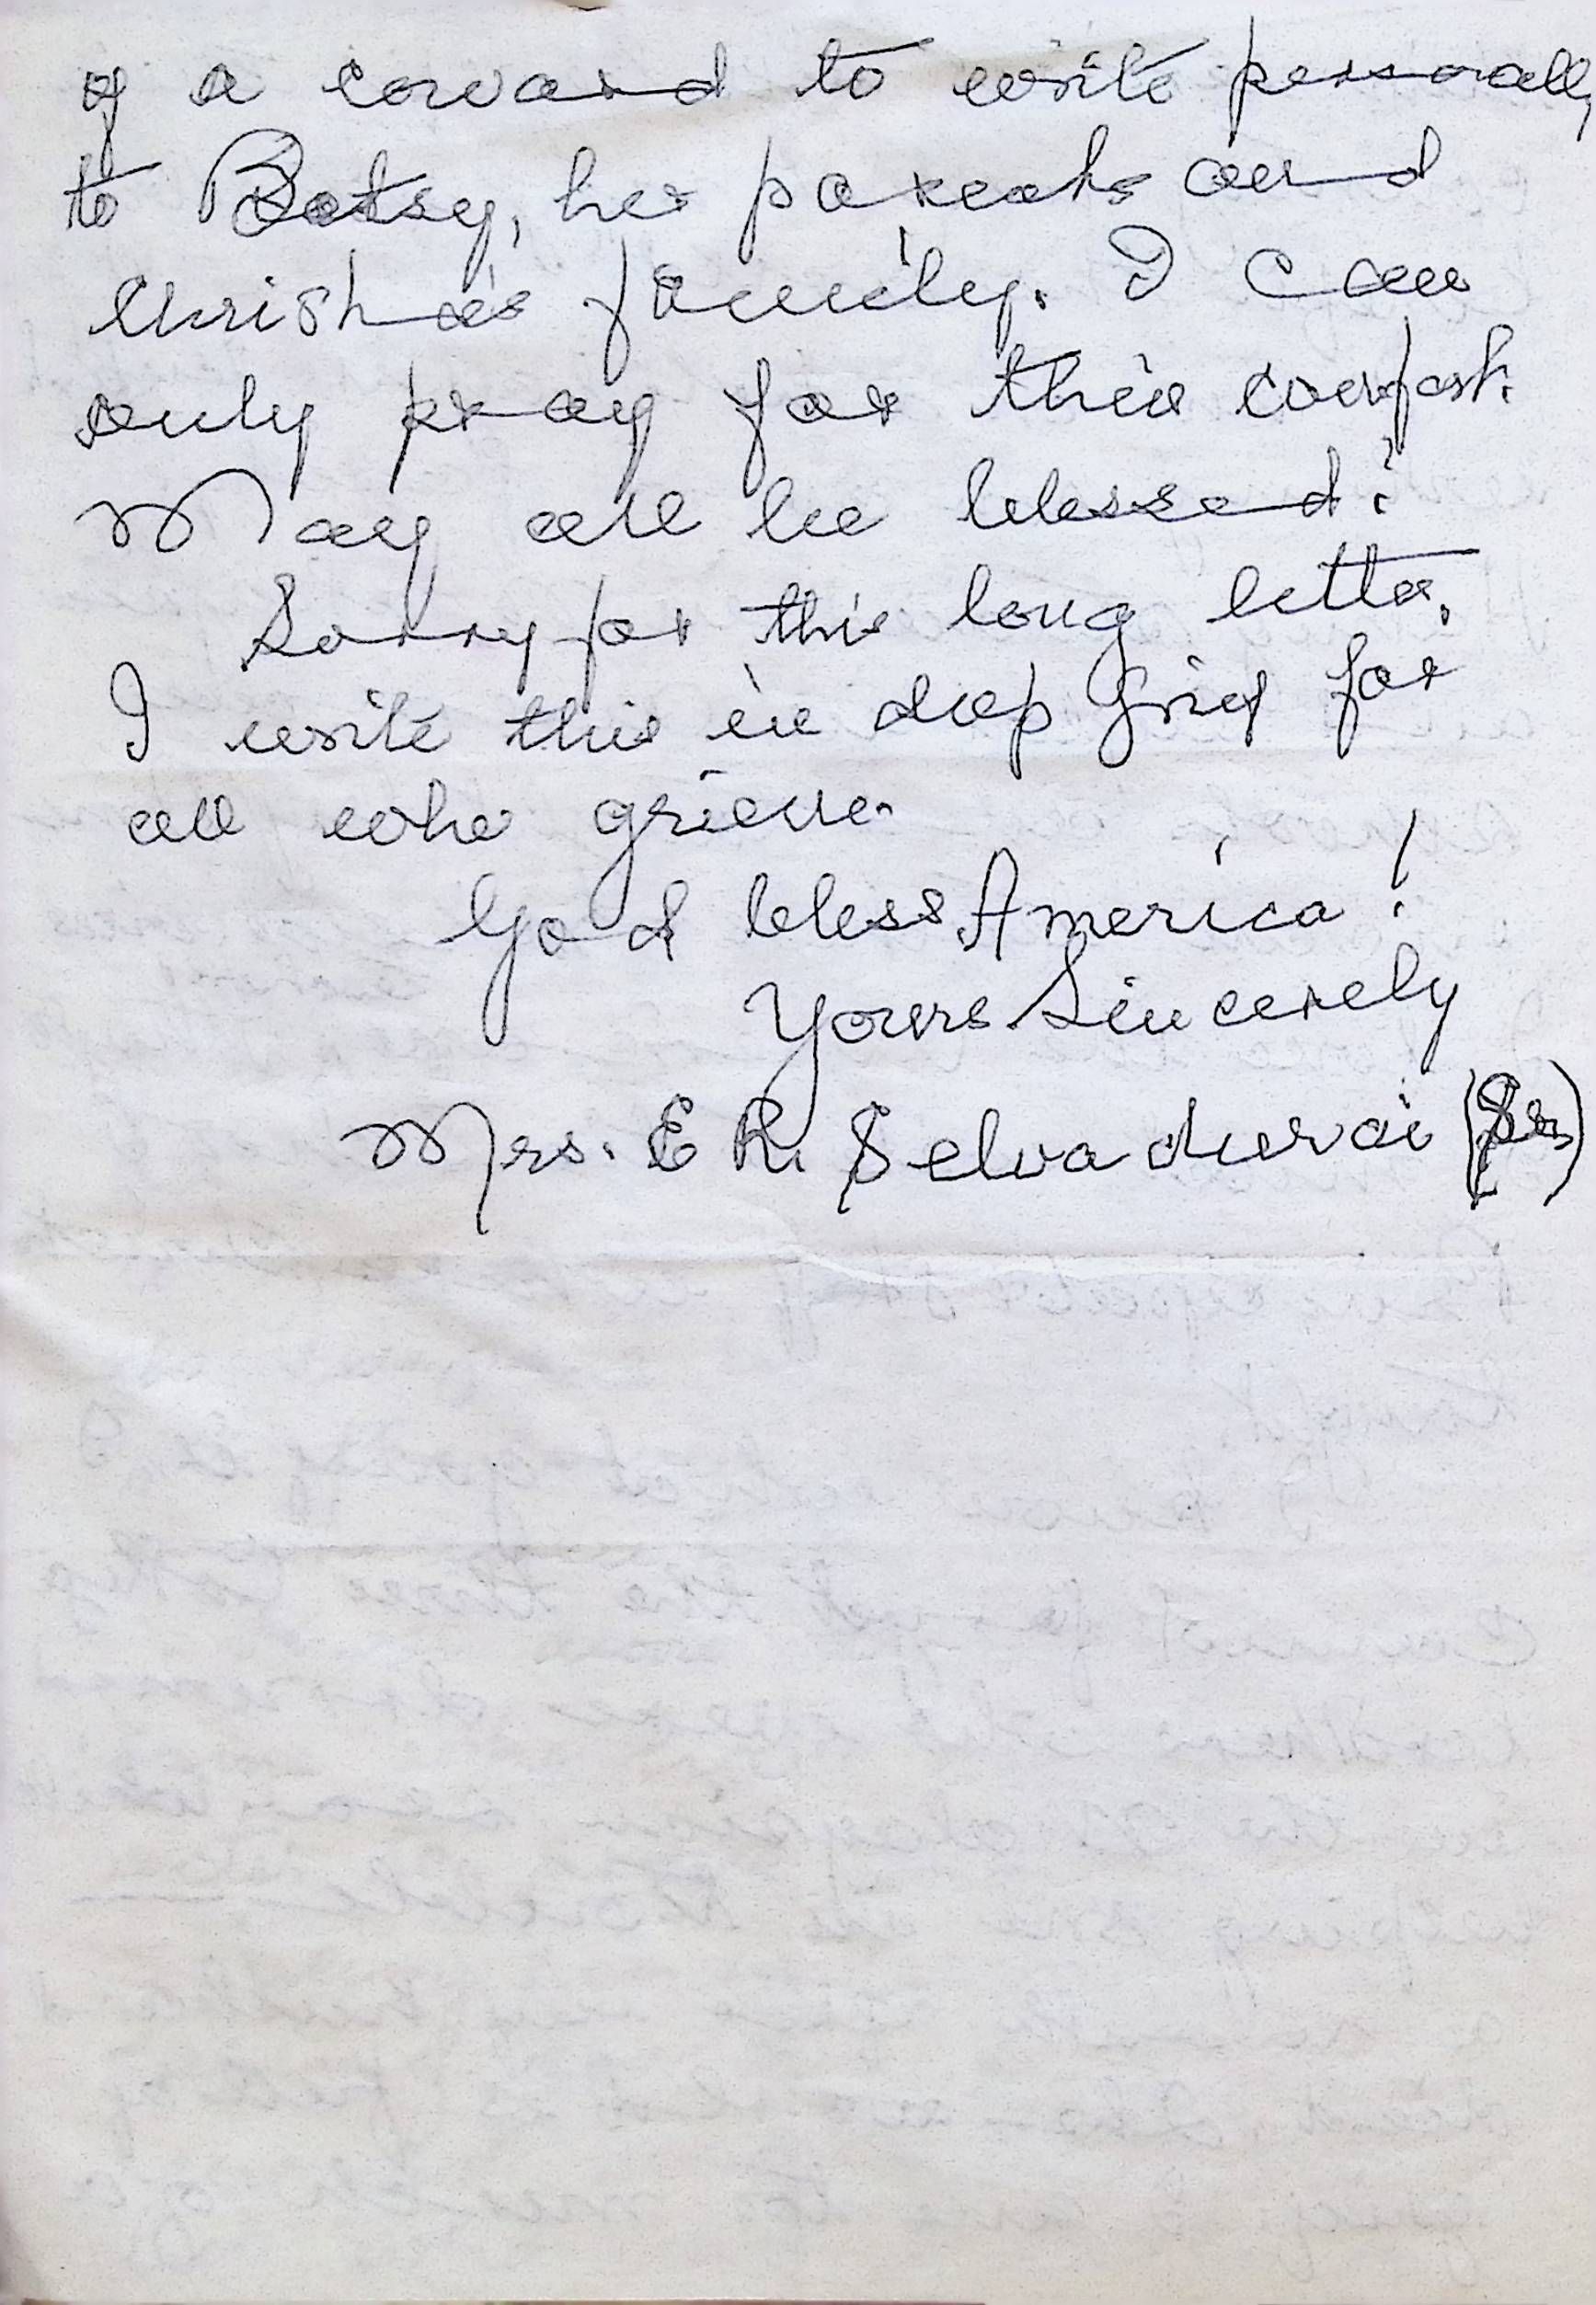 of a coward to write personally
to Betsy, her parents and
Chrisha's family. I can
only pray for their comfort.
May all be blessed!
Sorry for this long letter.
I write this in deep Grief for
all who grieve.
God bless America!
Yours Sincerely
Mrs. E R. Selvadurai (Sr)